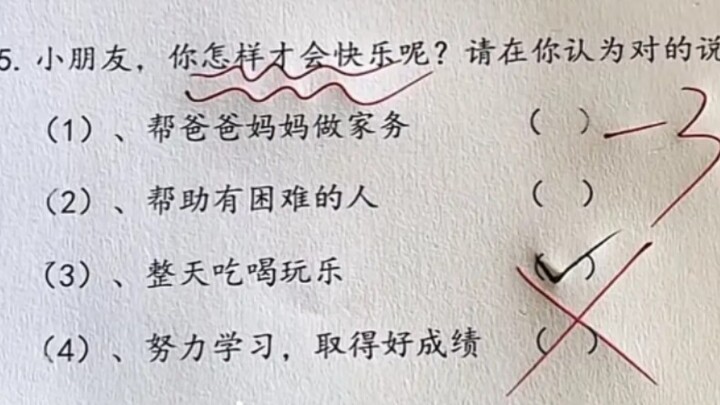 5. 小朋友，你怎样才会快乐呢？请在你认为对的说
(1)、帮爸爸妈妈做家务 ( ) —3
(2)、帮助有困难的人 ( )
(3)、整天吃喝玩乐 (✓)
(4)、努力学习，取得好成绩 ( )